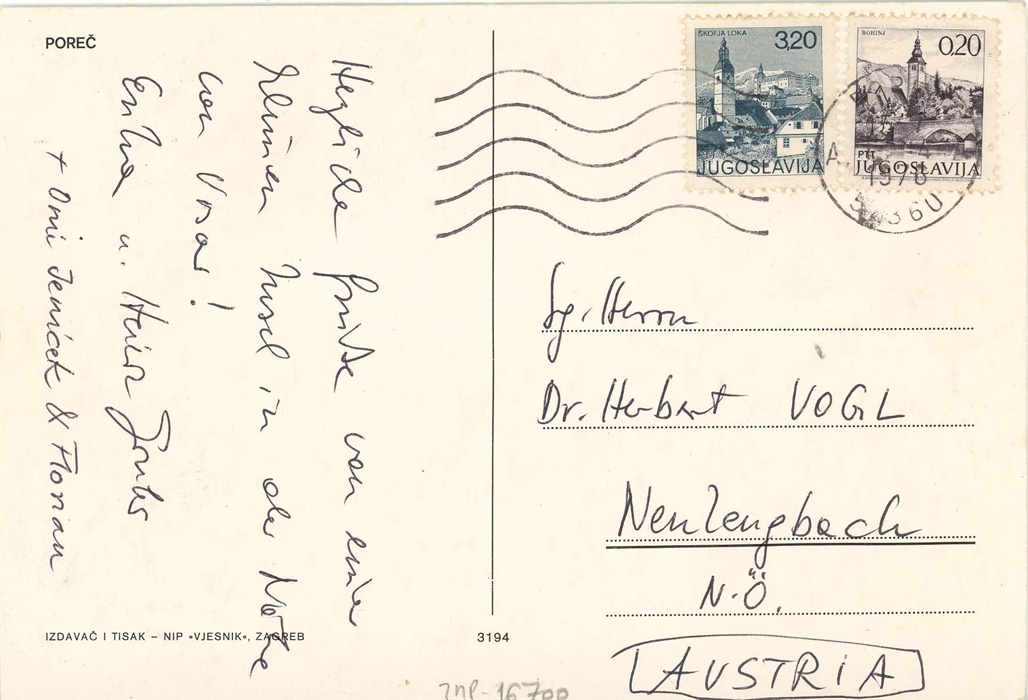 POREČ
Herzliche Grüße von einer
kleinen Insel in der Nähe
von Vrsar!
Erika u. Heinz
+ Omi Jenicek & Florian
ŠKOFJA LOKA
3,20
JUGOSLAVIJA
BOHINJ
0,20
PTT
JUGOSLAVIJA
1976
52360
Sg. Herrn
Dr. Herbert VOGL
Neulengbach
N.Ö.
AUSTRIA
IZDAVAČ I TISAK – NIP »VJESNIK«, ZAGREB
3194